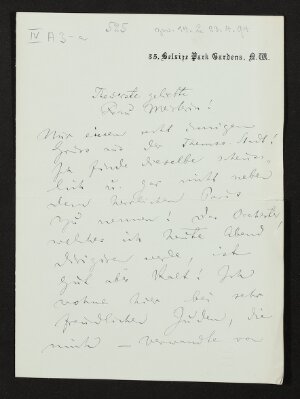 IV A 3-a 525
85, Belsize Park Gardens. N.W.
Theuerste geliebte
Frau Meisterin!
Nur einen recht innigen
Gruss aus der Themse-Stadt!
Ich finde dieselbe scheuss-
lich u. gar nicht neben
dem herrlichen Paris
zu nennen! Das Orchester,
welches ich heute Abend
dirigieren werde, ist
gut aber kalt! Ich
wohne hier bei sehr
freundlichen Juden, die
mich – verwandte von